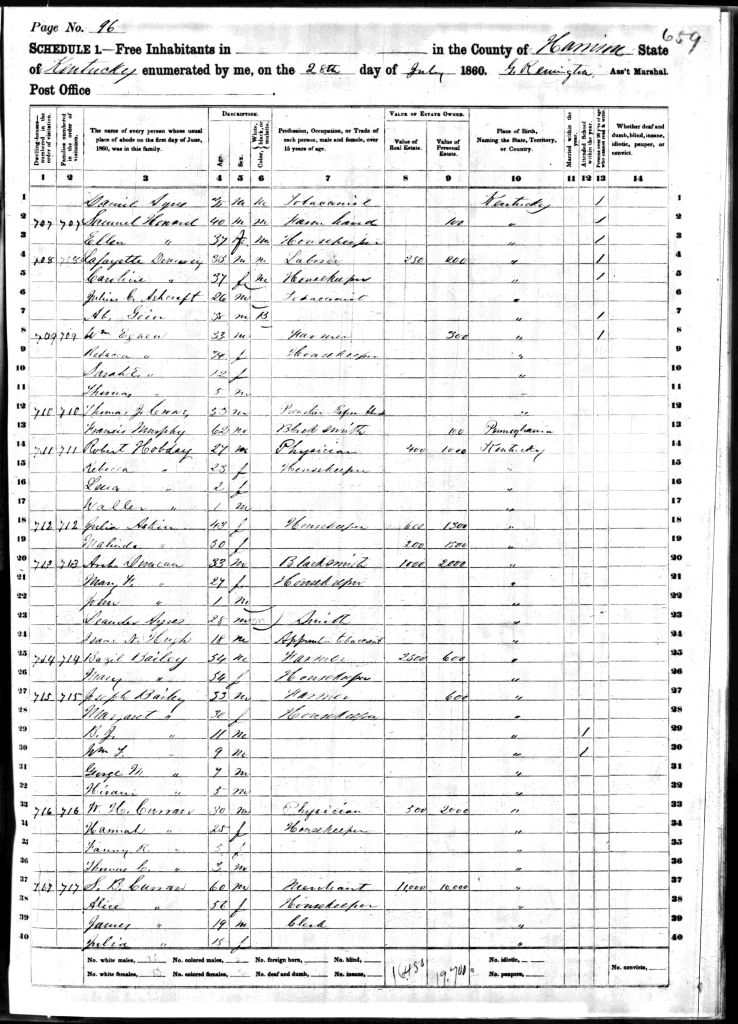 Page No. 96
659
SCHEDULE 1.—Free Inhabitants in in the County of Harrison State
of Kentucky enumerated by me, on the 28th day of July 1860. G. Remington, Ass't Marshal.
Post Office
Dwelling-houses—numbered in the order of visitation.
Families numbered in the order of visitation.
The name of every person whose usual place of abode on the first day of June, 1860, was in this family.
DESCRIPTION.
Age.
Sex.
Color, White, black, or mulatto.
Profession, Occupation, or Trade of each person, male and female, over 15 years of age.
VALUE OF ESTATE OWNED.
Value of Real Estate.
Value of Personal Estate.
Place of Birth, Naming the State, Territory, or Country.
Married within the year.
Attended School within the year.
Persons over 20 y'rs of age who cannot read & write.
Whether deaf and dumb, blind, insane, idiotic, pauper, or convict.
1 2 3 4 5 6 7 8 9 10 11 12 13 14
1 Daniel Ayres m m Tobacconist Kentucky / 1
2 707 707 Samuel Howard 40 m m Farm hand 100 " / 2
3 Ellen " 37 f m Housekeeper " / 3
4 708 708 Lafayette 35 m m Laborer 250 200 " / 4
5 Caroline " 37 f m Housekeeper " / 5
6 Julius C. Ashcraft 26 m Tobacconist " 6
7 Ab. m B " / 7
8 709 709 Wm 33 m Farmer 300 " / 8
9 Rebecca " 34 f Housekeeper " 9
10 Sarah E. " 12 f " 10
11 Thomas " 5 m " 11
12 710 710 Thomas J. 23 m " 12
13 Francis Murphy 62 m Blacksmith 100 Pennsylvania 13
14 711 711 Robert Hobday 27 m Physician 400 1000 Kentucky 14
15 Rebecca " 23 f Housekeeper " 15
16 " 2 f " 16
17 Waller " 1 m " 17
18 712 712 Julia Askin 43 f Housekeeper 600 1500 " 18
19 Malinda " 30 f 200 1500 " 19
20 713 713 Arch Duncan 33 m Blacksmith 1000 2000 " 20
21 Mary " 27 f Housekeeper " 21
22 John " 1 m " 22
23 Leander Ayres 28 m Smith " 23
24 Isaac N. Hugh 18 m " 24
25 714 714 Bazil Bailey 54 m Farmer 2500 600 " 25
26 Mary " 54 f Housekeeper " 26
27 715 715 Joseph Bailey 33 m Farmer 600 " 27
28 Margaret " 30 f Housekeeper " 28
29 B. J. " 11 m " / 29
30 Wm " 9 m " / 30
31 George M. " 7 m " 31
32 Hiram " 5 m " 32
33 716 716 W. H. Curran 30 m Physician 500 2000 " 33
34 Hannah " 25 f Housekeeper " 34
35 Fanny R. " f " 35
36 Thomas C. " 3 m " 36
37 717 717 S. B. Curran 60 m Merchant 11000 10,000 " 37
38 Alice " 56 f Housekeeper " 38
39 James " 19 m Clerk " 39
40 Julia " 15 f " 40
No. white males, No. colored males, No. foreign born, No. blind, No. idiotic,
No. white females, No. colored females, No. deaf and dumb, No. insane, 16450 19,700 No. paupers, No. convicts,